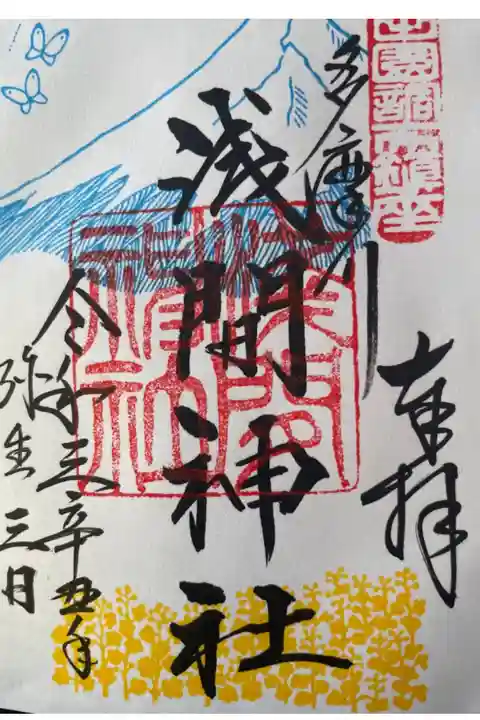 田園調布鎮座
奉拝
多摩川
浅間神社
令和三辛丑年
弥生三日